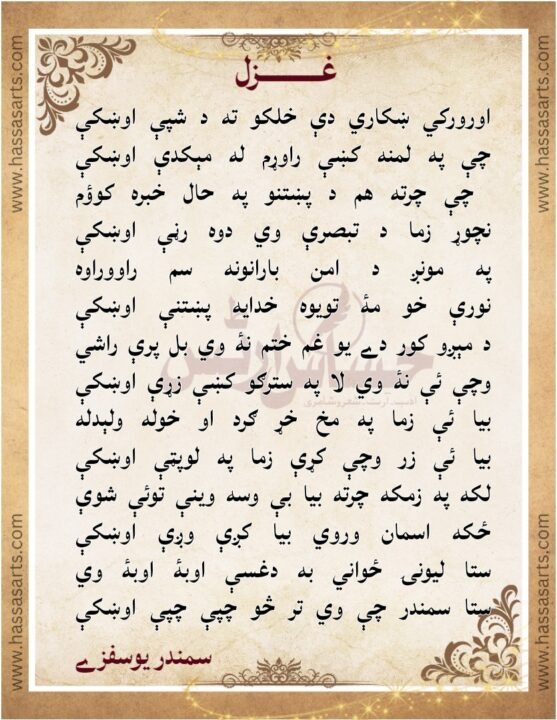 غزل
اورورکي ښکاري دې خلکو ته د شپې اوښکې
چې په لمنه کښې راوړم له مېکدې اوښکې
چې چرته هم د پښتنو په حال خبره کوؤم
نچوړ زما د تبصرې وي دوه رڼې اوښکې
په مونږ د امن بارانونه سم راووراوه
نورې خو مۀ تويوه خدايه پښتنې اوښکې
د مېړو کور دے يو غم ختم نۀ وي بل پرې راشي
وچې ئې نۀ وي لا په سترګو کښې زړې اوښکې
بيا ئې زما په مخ خړ ګرد او خوله وليدله
بيا ئې زر وچې کړې زما په لوپټې اوښکې
لکه په زمکه چرته بيا بې وسه وينې توئې شوې
ځکه اسمان وروي بيا کږې وږې اوښکې
ستا ليونۍ ځواني به دغسې اوبۀ اوبۀ وي
ستا سمندر چې وي تر څو چپې چپې اوښکې
سمندر يوسفزے
www.hassasarts.com
www.hassasarts.com
www.hassasarts.com
www.hassasarts.com
حساس آرٹس